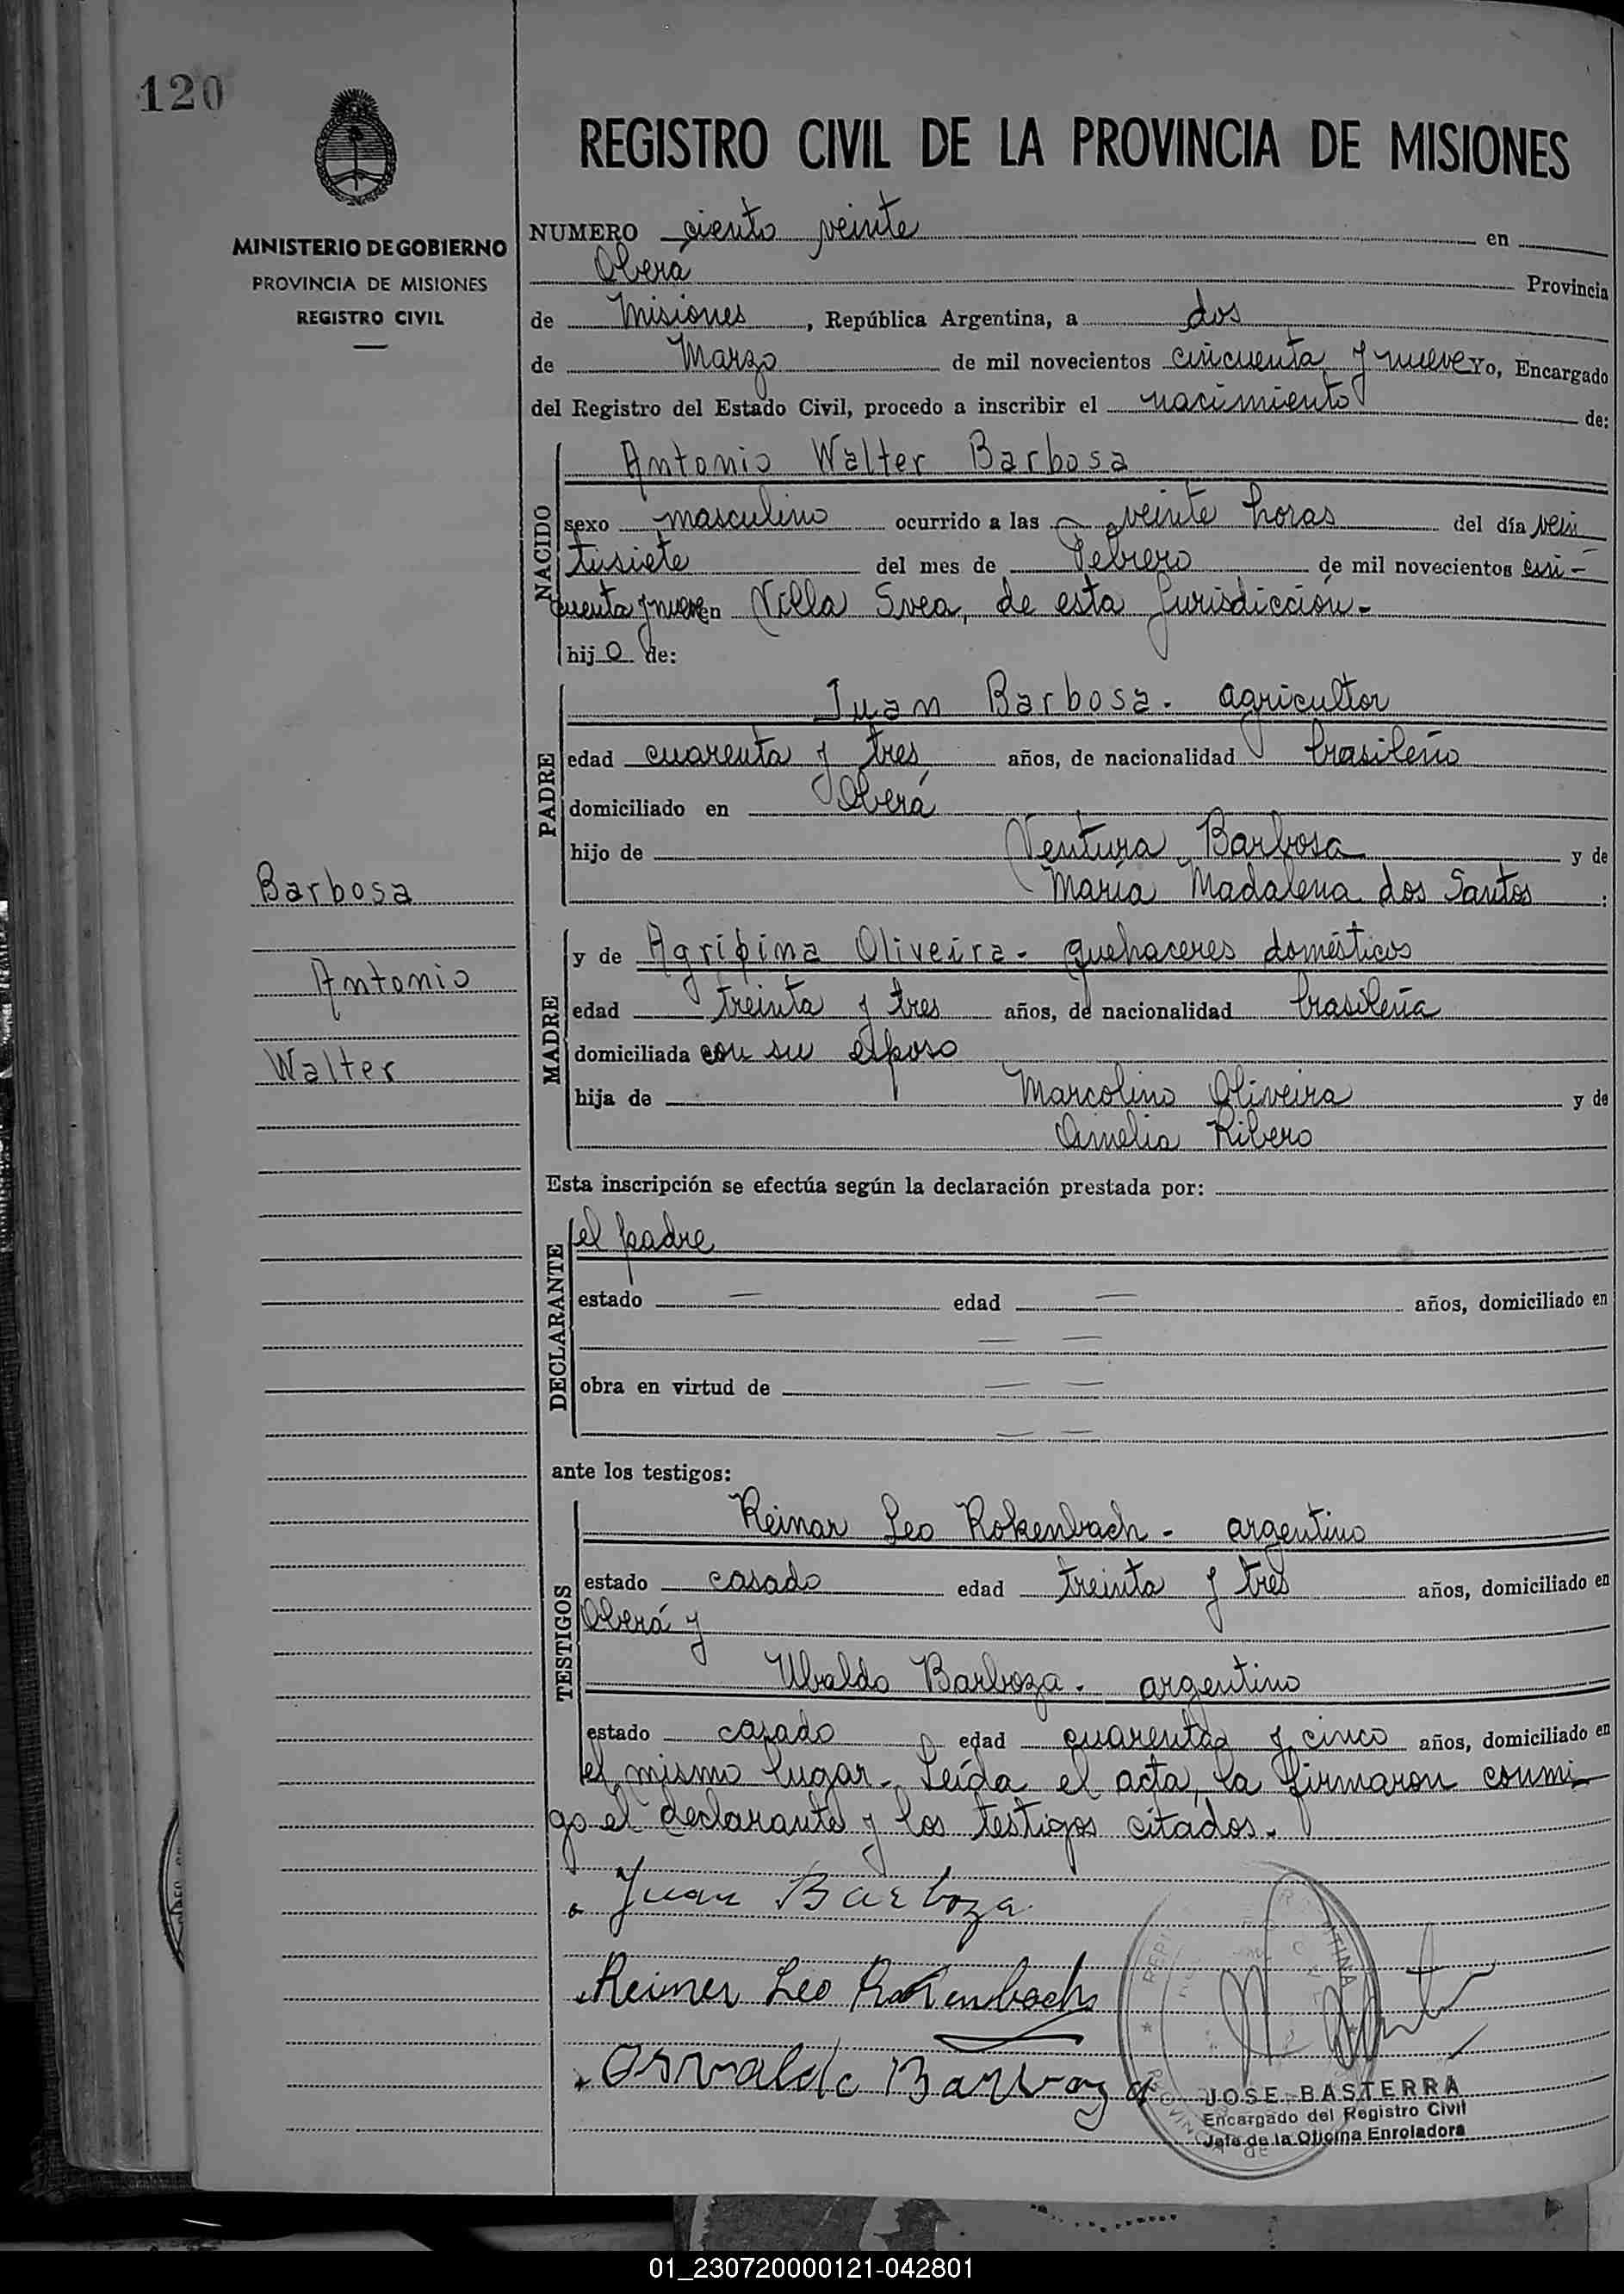 120
MINISTERIO DE GOBIERNO
PROVINCIA DE MISIONES
REGISTRO CIVIL
Barbosa
Antonio
Walter
REGISTRO CIVIL DE LA PROVINCIA DE MISIONES
NUMERO ciento veinte en
Oberá Provincia
de Misiones, República Argentina, a dos
de Marzo de mil novecientos cincuenta y nueve Yo, Encargado
del Registro del Estado Civil, procedo a inscribir el nacimiento de:
NACIDO
Antonio Walter Barbosa
sexo masculino ocurrido a las veinte horas del día vein
tisiete del mes de Febrero de mil novecientos cin-
cuenta y nueve en Villa Svea, de esta Jurisdicción.-
hijo de:
PADRE
Juan Barbosa. agricultor
edad cuarenta y tres años, de nacionalidad brasileño
domiciliado en Oberá
hijo de Ventura Barbosa y de
María Madalena dos Santos :
MADRE
y de Agripina Oliveira- quehaceres domésticos
edad treinta y tres años, de nacionalidad brasileña
domiciliada con su esposo
hija de Marcolino Oliveira y de
Amelia Ribero
Esta inscripción se efectúa según la declaración prestada por:
DECLARANTE
el padre
estado — edad — años, domiciliado en
— —
obra en virtud de — —
— —
ante los testigos:
TESTIGOS
Reinar Leo Rokenbach - argentino
estado casado edad treinta y tres años, domiciliado en
Oberá y
Ubaldo Barboza. argentino
estado casado edad cuarenta y cinco años, domiciliado en
el mismo lugar.- Leída el acta, la firmaron conmi-
go el declarante y los testigos citados.-
Juan Barboza
Reiner Leo Rokenbach
Osvaldo Barboza
JOSE BASTERRA
Encargado del Registro Civil
Jefe de la Oficina Enroladora
01_230720000121-042801